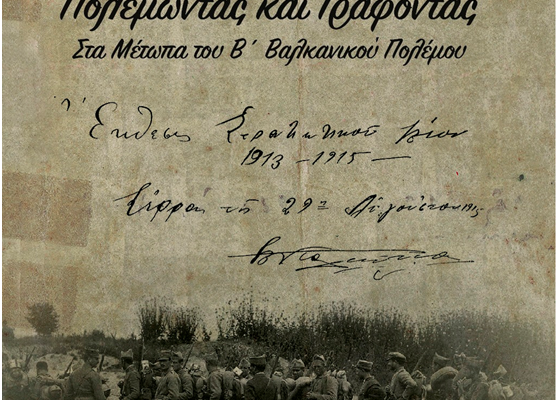 Πολεμώντας και Γράφοντας
Στα Μέτωπα του Β΄ Βαλκανικού Πολέμου
Έκθεσις Στρατιωτικού βίου
1913 - 1915 —
Σέρραι τη 29η Αυγούστου 1915